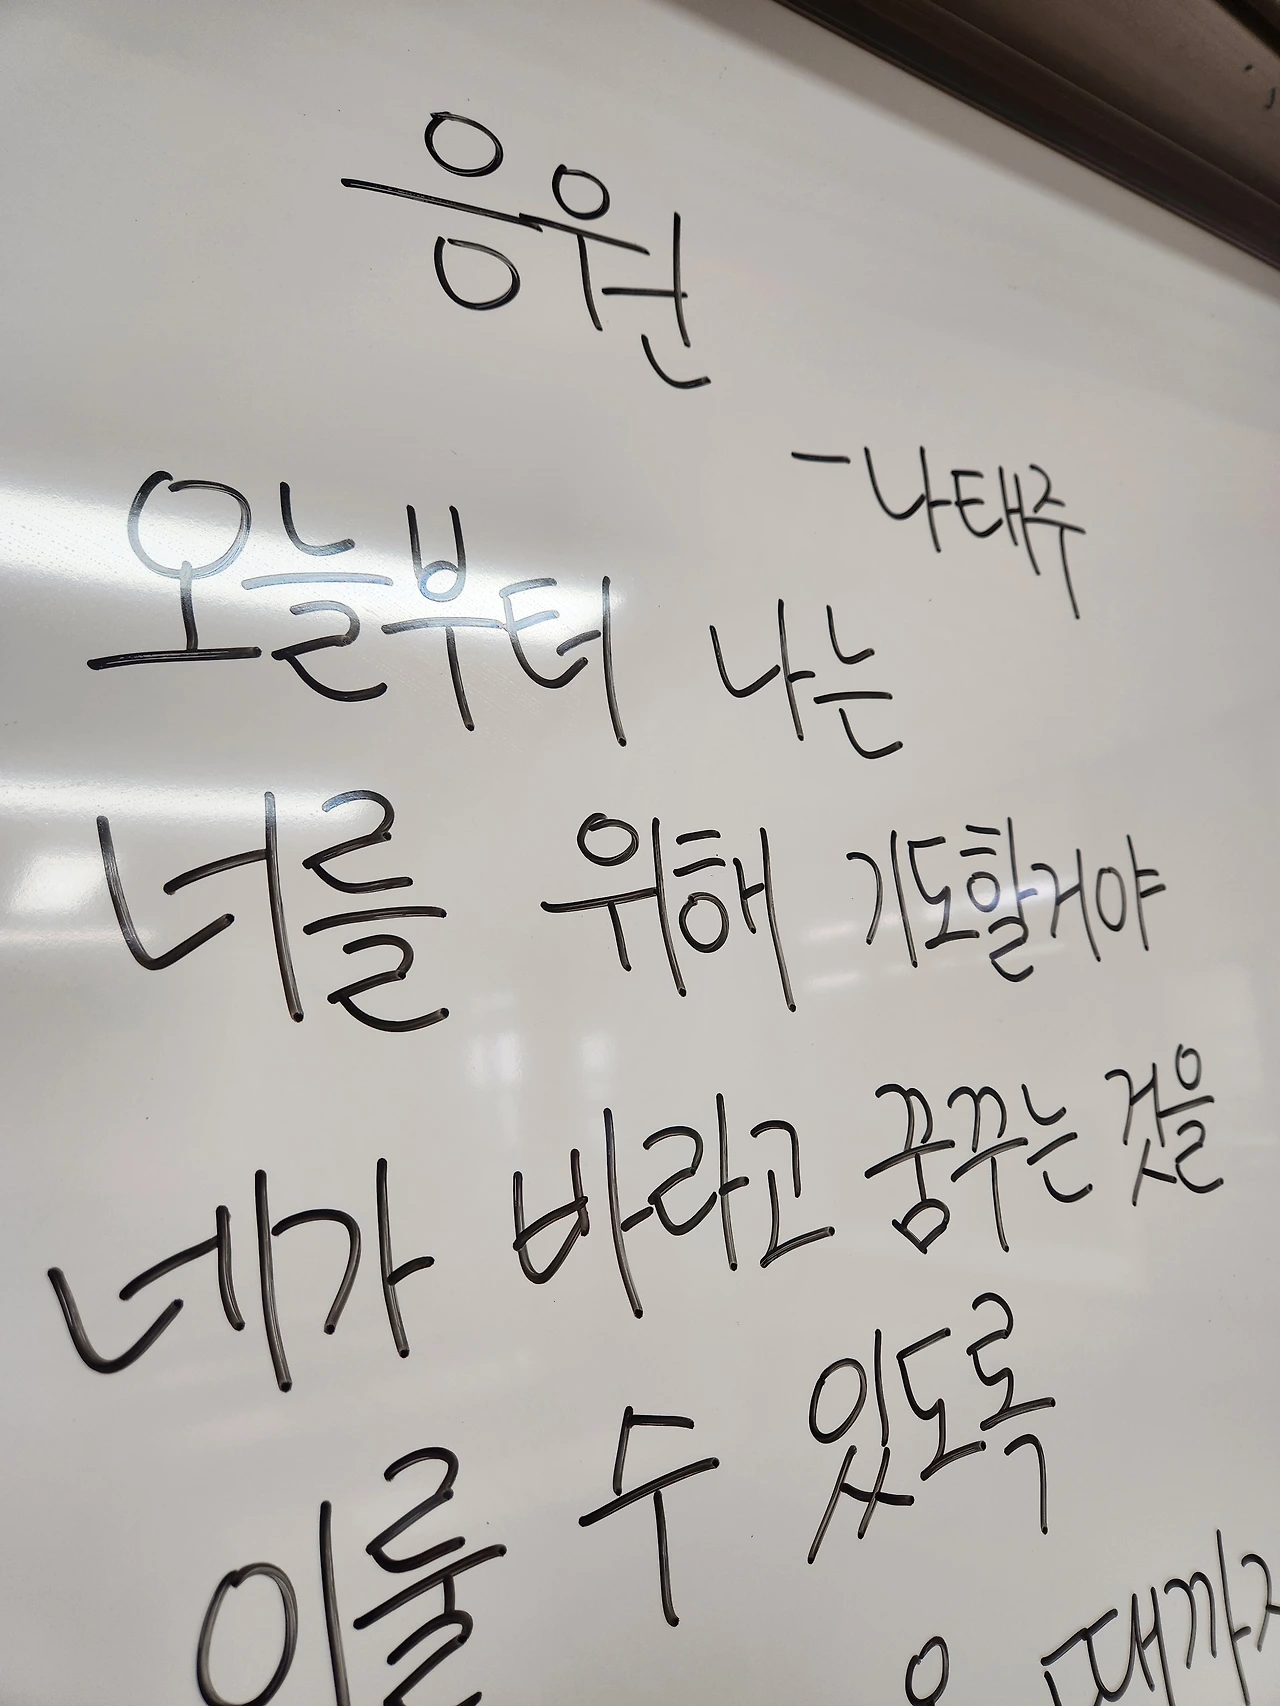 응원
-나태주
오늘부터 나는
너를 위해 기도할거야
네가 바라고 꿈꾸는 것을
이룰 수 있도록